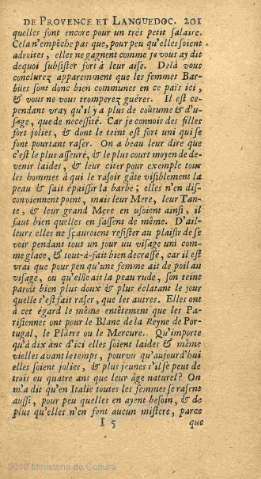 DE PROVENCE ET LANGUEDOC. 201
quelles font encore pour un très petit salaire.
Cela n'empêche pas que, pour peu qu'elles soient
adroites, elles ne gagnent comme je vous ay dit
dequoi subsister fort à leur aise. De là vous
conclurez apparemment que les femmes Bar-
bues sont donc bien communes en ce païs ici,
& vous ne vous tromperez guères. Il est ce-
pendant vray qu'il y a plus de coutume & d'u-
sage, que de necessité. Car je connois des filles
fort jolies, & dont le teint est fort uni qui se
font pourtant raser. On a beau leur dire que
c'est le plus asseuré, & le plus court moyen de de-
venir laides, & leur citer pour exemple tous
les hommes à qui le rasoir gâte visiblement la
peau & fait épaissir la barbe; elles n'en dis-
conviennent point, mais leur Mere, leur Tan-
te, & leur grand Mere en usoient ainsi, il
faut bien qu'elles en fassent de même. D'ail-
leurs elles ne sçauroient resister au plaisir de se
voir pendant tous un jour un visage uni com-
me glace, & tout-à-fait bien decrassé, car il est
vrai que pour peu qu'une femme ait de poil au
visage, ou qu'elle ait la peau rude, son teint
paroît bien plus doux & plus éclatant le jour
quelle s'est fait raser, que les autres. Elles ont
à cet égard le même entêtement que les Pa-
risiennes ont pour le Blanc de la Reyne de Por-
tugal, le Plâtre ou le Mercure. Qu'importe
qu'à dix ans d'ici elles soient laides & même
vielles avant le temps, pourvu qu'aujourd'hui
elles soient jolies, & plus jeunes s'il se peut de
trois ou quatre ans que leur âge naturel? On
m'a dit qu'en Italie toutes les femmes se rasent
aussi, pour peu quelles en ayent besoin, & de
plus qu'elles n'en font aucun mistere, parce
I 5 que
Ministerio de Cultura